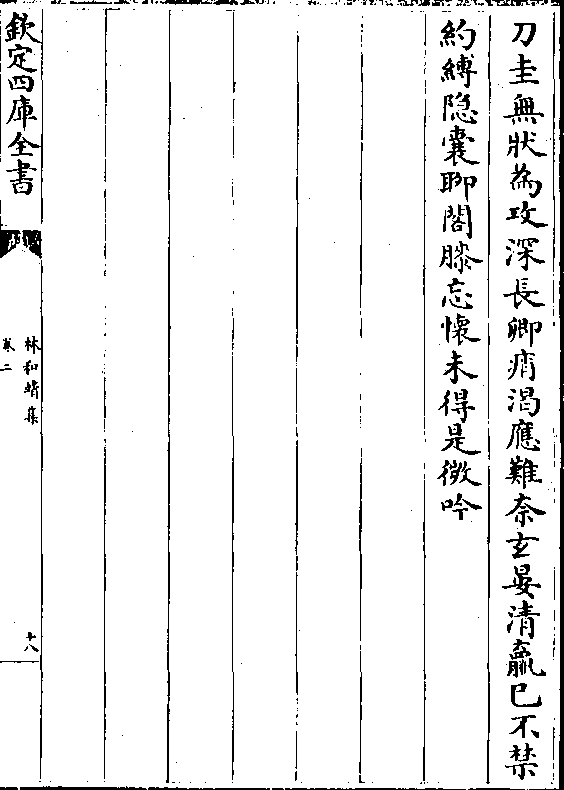 刀圭無狀為攻深長卿痟渴應難奈玄晏清羸已不禁
約縛隐囊聊閣膝忘懷未得是微吟
欽定四庫全書
林和靖集
卷二
十八